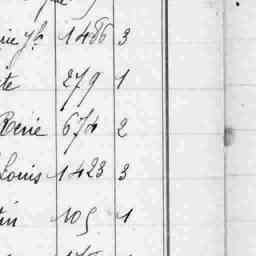 1486 3
te 279 1
René 674 2
Louis 1423 3
tin 105 1